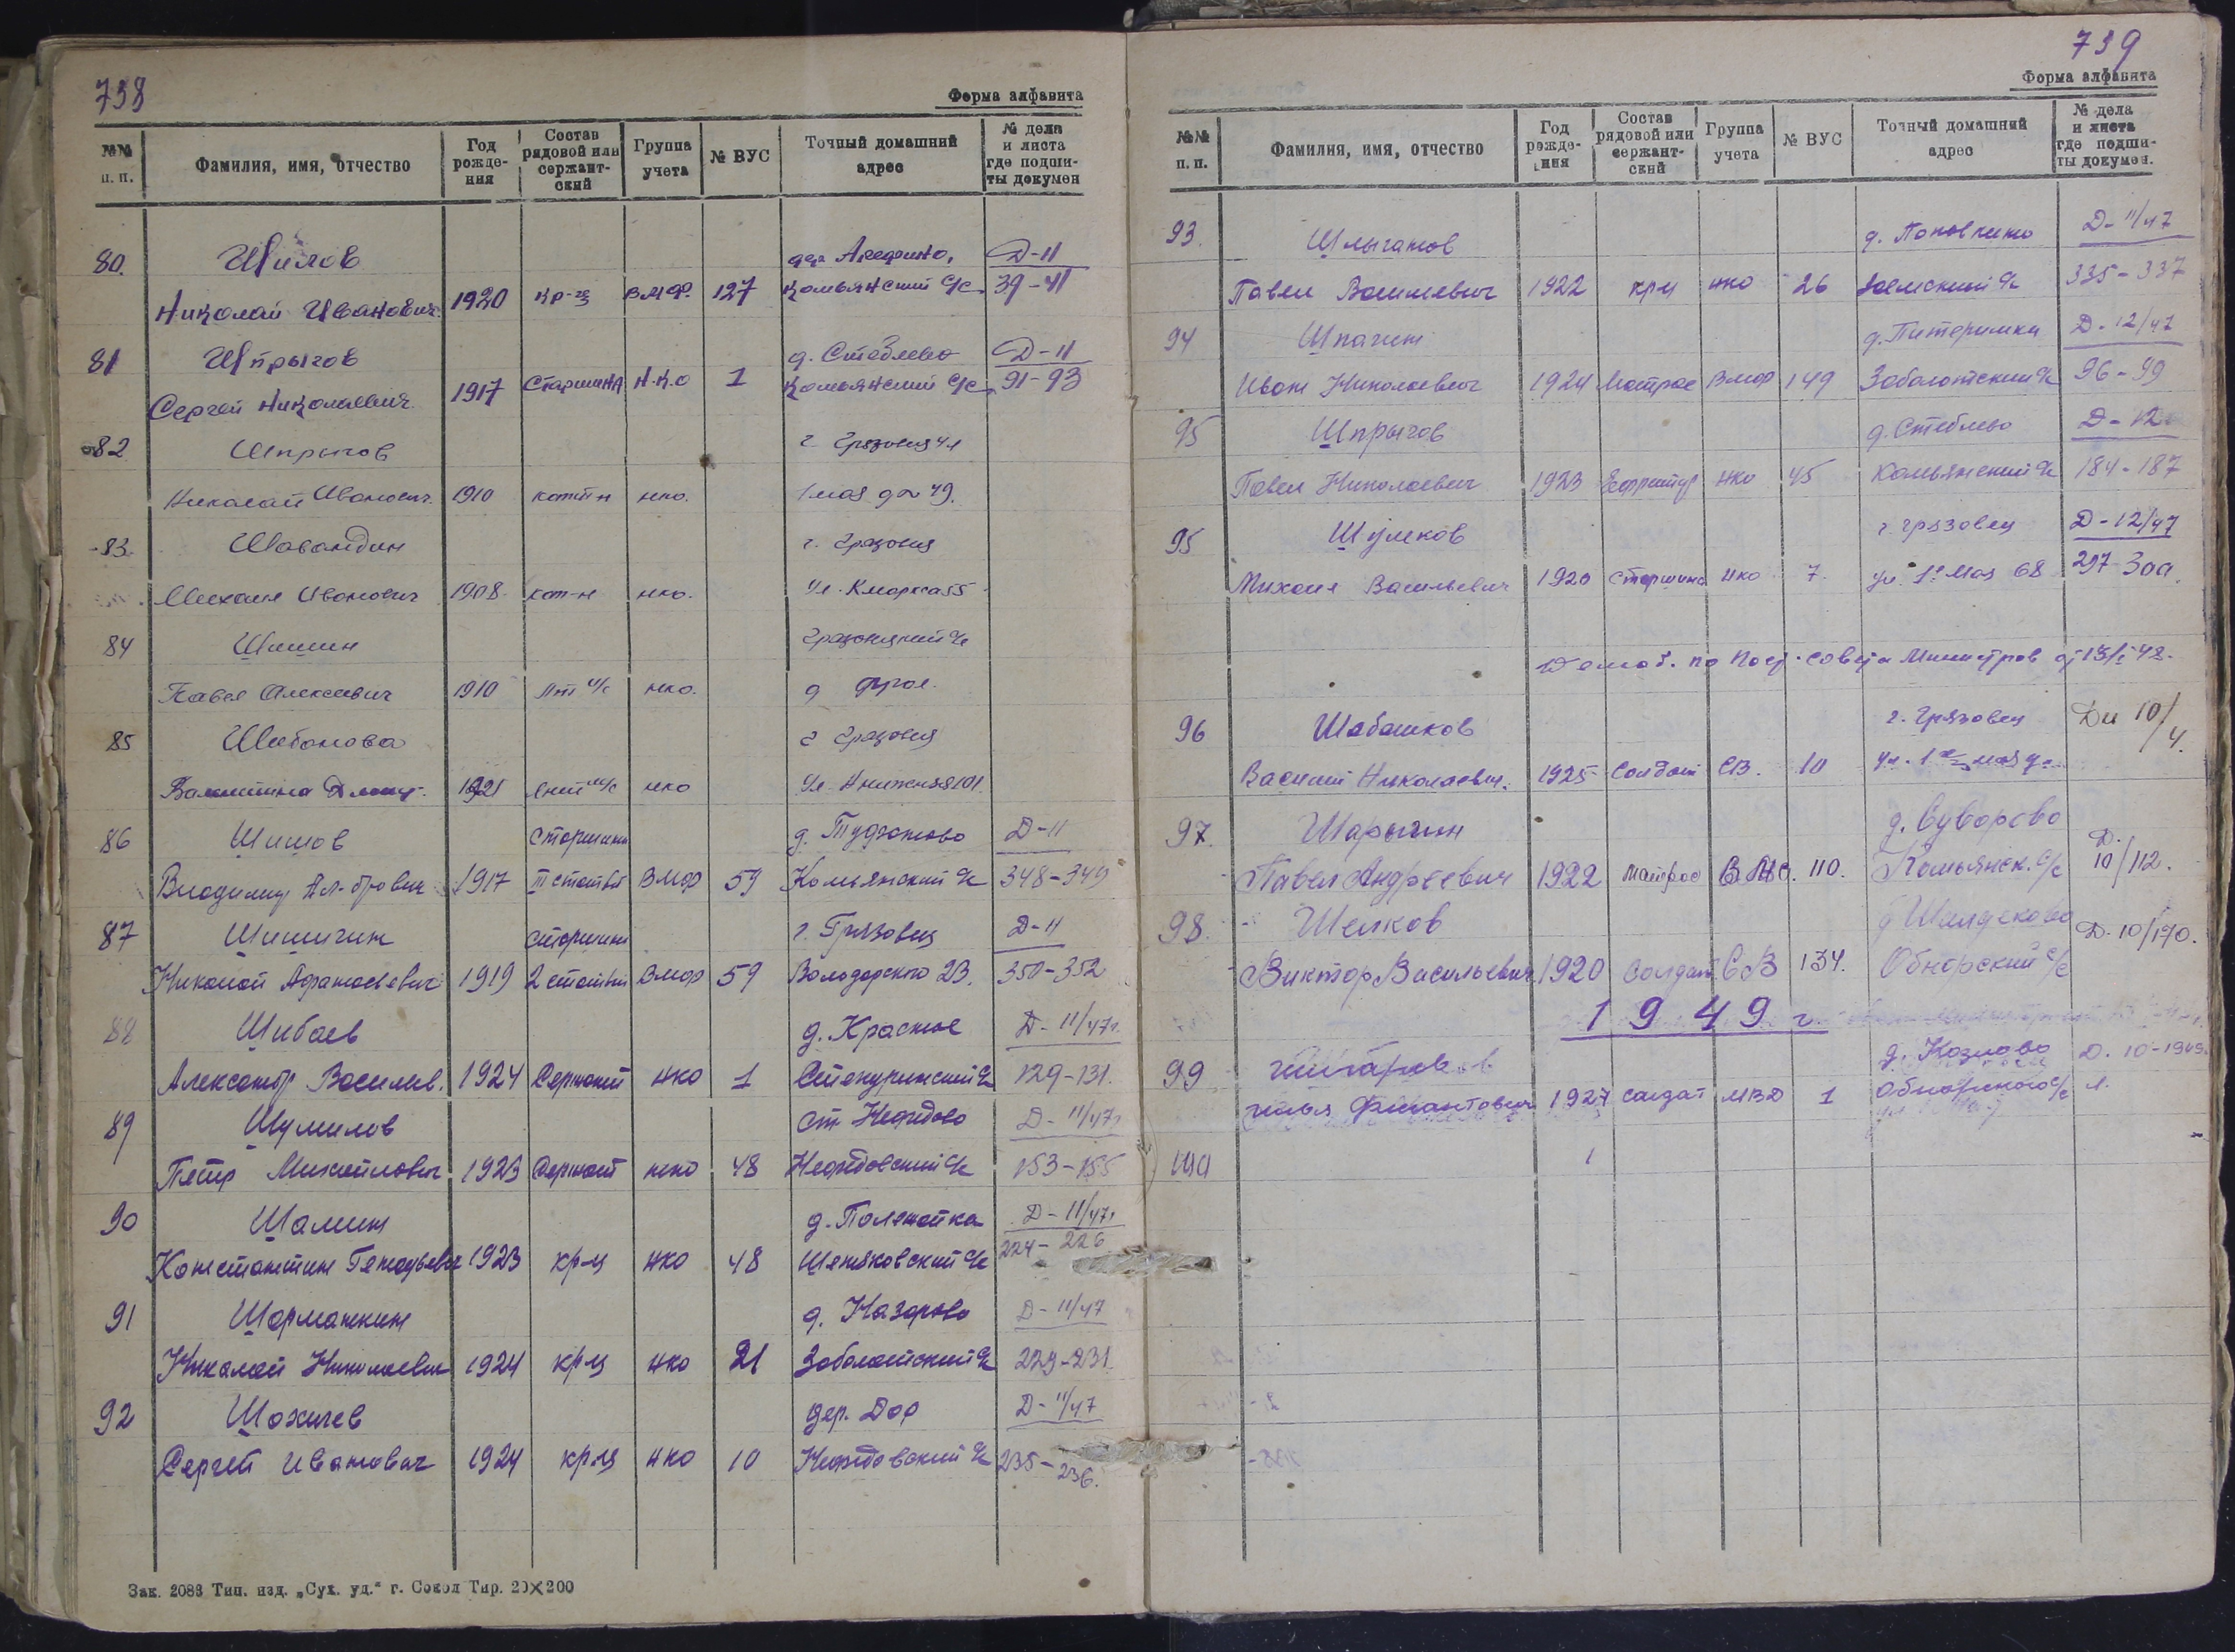 738
Форма алфавита
№№ п. п. | Фамилия, имя, отчество | Год рожде-ния | Состав рядовой или сержант-ский | Группа учета | № ВУС | Точный домашний адрес | № дела и листа где подши-ты докумен
80. Шилов дер Арефино, Д-11
Николай Иванович. 1920 кр-ц ВМФ. 127 Комьянский с/с 39-41
81 Шпрыгов д. Стеблево Д-11
Сергей Николаевич. 1917 Старшина Н.К.О 1 Комьянский с/с 91-93
82 Шпрыгов г Грязовец ул
Николай Иванович. 1910 нко. 1 мая д 49.
83 г. Грязовец
Михаил Иванович 1908 нко. ул. К маркса 55
84 Шишин
Павел Алексеевич 1910 нко. д
85 г Грязовец
Валентина 1921 нко ул.
86 Шишов старшина д. Д-11
Владимир 1917 II статьи ВМФ 59 Комьянский с/с 348-349
87 Шишигин старшина г. Грязовец Д-11
Николай Афанасьевич 1919 2 статьи ВМФ 59 Володарского 23. 350-352
88 Шибаев д. Красное Д-11/47г.
Александр Васильев. 1924 Сержант нко 1 129-131.
89 Шумилов ст Нефедово Д-11/47г
Петр Михайлович 1923 Сержант нко 48 Нефедовский с/с 153-155
90 Шамин д. Д-11/47г
Константин Генадьевич 1923 кр-ц нко 48 224-226
91 Шарманкин д. Назарово Д-11/47
Николай Николаевич 1924 кр-ц нко 21 Заболотский с/с 229-231
92 дер. Дор Д-11/47
Сергей Иванович 1924 кр-ц нко 10 Нефедовский с/с 235-236.
Зак. 2083 Тип. изд. „Сух. уд.“ г. Сокол Тир. 20×200
739
Форма алфавита
№№ п. п. | Фамилия, имя, отчество | Год рожде-ния | Состав рядовой или сержант-ский | Группа учета | № ВУС | Точный домашний адрес | № дела и листа где подши-ты докумен.
93. Шлыганов д. Поповкино Д-11/47
Павел Васильевич 1922 крц нко 26 335-337
94 Шпагин д. Питеримка Д-12/47
Иван Николаевич 1924 Матрос ВМФ 149 Заболотский с/с 96-99
95 Шпрыгов д. Стеблево Д-12
Павел Николаевич 1923 Ефрейтор нко 45 Комьянский с/с 184-187
95 Шумков г. Грязовец Д-12/47
Михаил Васильевич 1920 Старшина нко 7. ул. 1е Мая 68 297-300.
Демоб. по Пост. Совета Министров
96 Шабашков г. Грязовец 10/4.
Василий Николаевич. 1925 Солдат СВ. 10 ул. 1го мая д.
97. Шарыгин д. Суворово Д.
Павел Андреевич 1922 матрос ВМС. 110. Комьянск. с/с 10/112.
98. Шелков д Д. 10/170.
Виктор Васильевич 1920 Солдат СВ 134. Обнорский с/с
1949 г.
99 д. Козлово Д. 10-1949
илья 1927 солдат МВД 1 Обнорского с/с л.